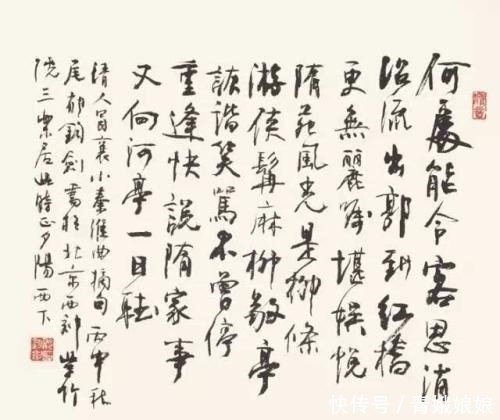 何處能令客思消
沿流出郭到紅橋
更無麗堪娛悅
隋苑風光是柳條
游俠髯麻柳敬亭
詼諧笑罵不曾停
重逢快說隋家事
又向河亭一日聽
清人冒襄小秦淮曲摘句丙申秋
尾郁鈞劍書於北京西郊紫竹
院三樂居此時正夕陽西下
快传号/青娥娘娘